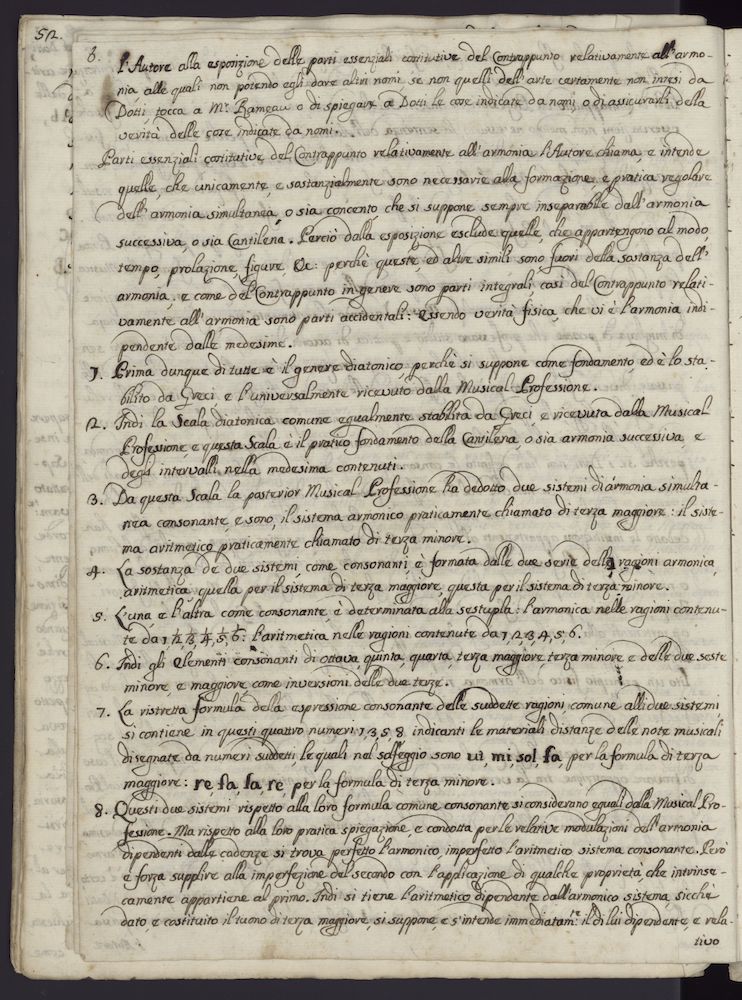 52.
6. L'Autore alla esposizione delle parti essenziali costitutive del Contrappunto relativamente all'armo-
nia alle quali non potendo egli dare altri nomi, se non quelli dell'arte certamente non intesi da
Dotti, tocca a Mr. Rameau o di spiegare a Dotti le cose indicate da nomi, o di assicurarli della
verità delle cose indicate da nomi.
Parti essenziali costitutive del Contrappunto relativamente all'armonia l'Autore chiama, e intende
quelle, che unicamente, e sostanzialmente sono necessarie alla formazione, e pratica regolare
dell'armonia simultanea, o sia concento che si suppone sempre inseparabile dall'armonia
successiva, o sia Cantilena. Perciò dalla esposizione esclude quelle, che appartengono al modo,
tempo, prolazione, figure, &c: perchè queste ed altre simili sono fuori della sostanza dell'
armonia, e come del Contrappunto in genere sono parti integrali così del Contrappunto relati-
vamente all'armonia sono parti accidentali: Essendo verità fisica, che vi è l'armonia indi-
pendente dalle medesime.
1. Prima dunque di tutte è il genere diatonico, perchè si suppone come fondamento, ed è lo sta-
bilito da Greci, e l'universalmente ricevuto dalla Musical Professione.
2. Indi la Scala diatonica comune egualmente stabilita da Greci, e ricevuta dalla Musical
Professione, e questa Scala è il pratico fondamento della Cantilena, o sia armonia successiva, e
degli intervalli nella medesima contenuti.
3. Da questa Scala la posterior Musical Professione ha dedotto due sistemi di armonia simulta-
nea consonante, e sono, il sistema armonico praticamente chiamato di terza maggiore: il siste-
ma aritmetico praticamente chiamato di terza minore.
4. La sostanza de due sistemi come consonanti è formata dalle due serie delle ragioni armonica,
aritmetica, quella per il sistema di terza maggiore, questa per il sistema di terza minore.
5. L'una e l'altra come consonante, è determinata alla sestupla: l'armonica nelle ragioni contenu-
te da 1 1/2, 1/3, 1/4, 1/5, 1/6: l'aritmetica nelle ragioni contenute da 1, 2, 3, 4, 5, 6.
6. Indi gli Elementi consonanti di ottava, quinta, quarta, terza maggiore, terza minore, e delle due seste
minore, e maggiore, come inversioni delle due terze.
7. La ristretta formula della espressione consonante delle suddette ragioni, comune alli due sistemi,
si contiene in questi quattro numeri 1, 3, 5, 8, indicanti le materiali distanze delle note musicali
disegnate da numeri suddetti le quali nel solfeggio sono ut, mi, sol, fa, per la formula di terza
maggiore: re fa, la, re, per la formula di terza minore.
8. Questi due sistemi rispetto alla loro formula comune consonante, si considerano eguali dalla Musical Pro-
fessione. Ma rispetto alla loro pratica spiegazione, e condotta per le relative modulazioni dell'armonia
dipendenti dalle cadenze si trova perfetto l'armonico imperfetto l'aritmetico sistema consonante. Però
è forza supplire alla imperfezione del secondo con l'applicazione di qualche proprietà che intrinse-
camente appartiene al primo. Indi si tiene l'aritmetico dipendente dall'armonico sistema, sicchè
dato, e costituito il tuono di terza maggiore, si suppone e s'intende immediatamte: il di lui dipendente, e rela-
tivo